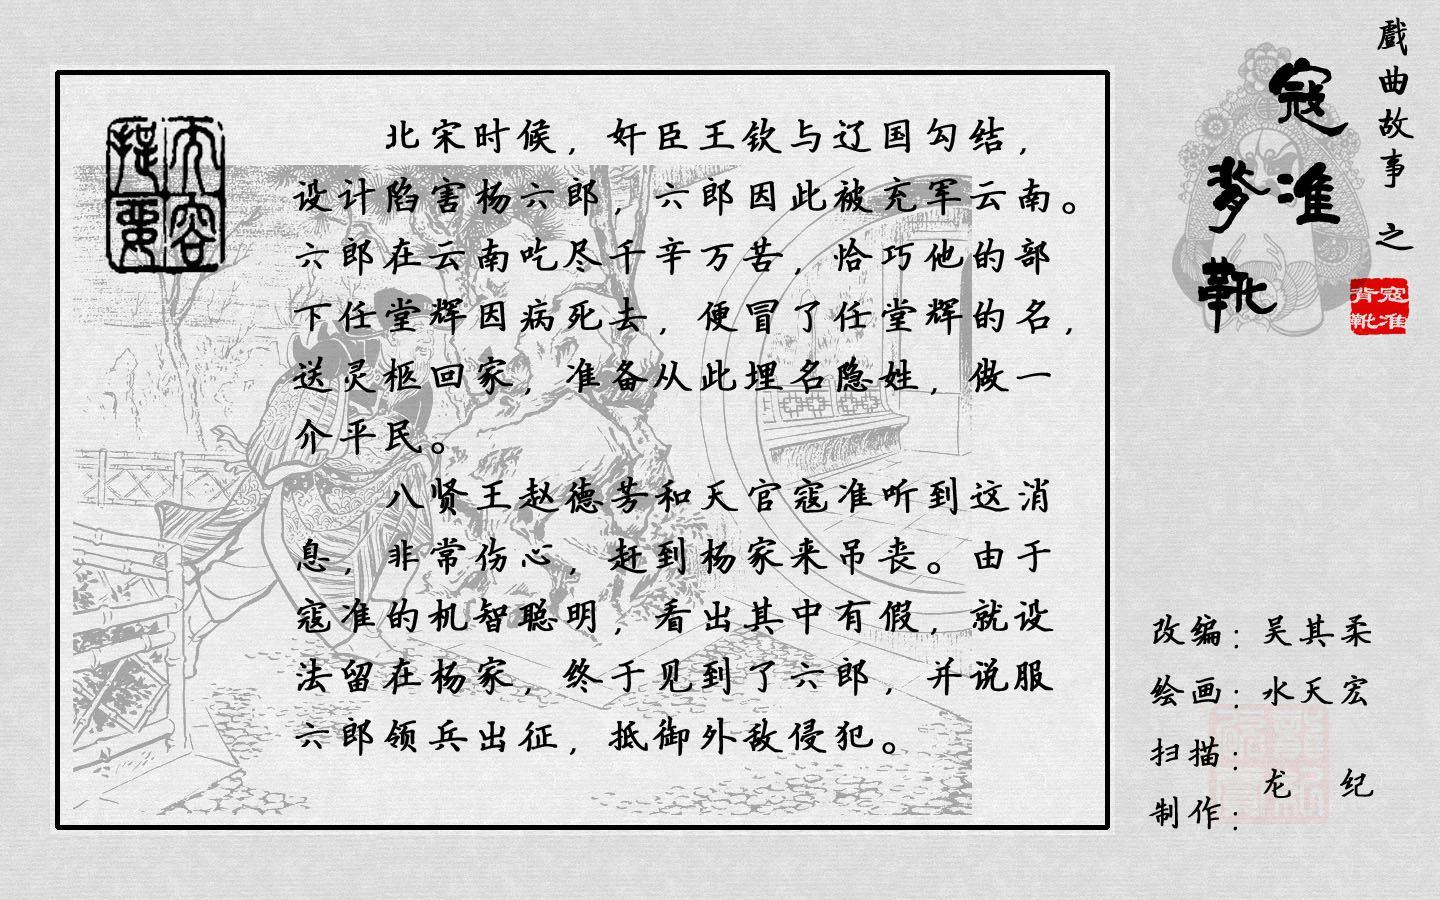 内容提要
北宋时候，奸臣王钦与辽国勾结，
设计陷害杨六郎，六郎因此被充军云南。
六郎在云南吃尽千辛万苦，恰巧他的部
下任堂辉因病死去，便冒了任堂辉的名，
送灵柩回家，准备从此埋名隐姓，做一
介平民。
八贤王赵德芳和天官寇准听到这消
息，非常伤心，赶到杨家来吊丧。由于
寇准的机智聪明，看出其中有假，就设
法留在杨家，终于见到了六郎，并说服
六郎领兵出征，抵御外敌侵犯。
戲曲故事之
寇准
背靴
寇准
背靴
改编：吴其柔
绘画：水天宏
扫描：
制作：
龙纪